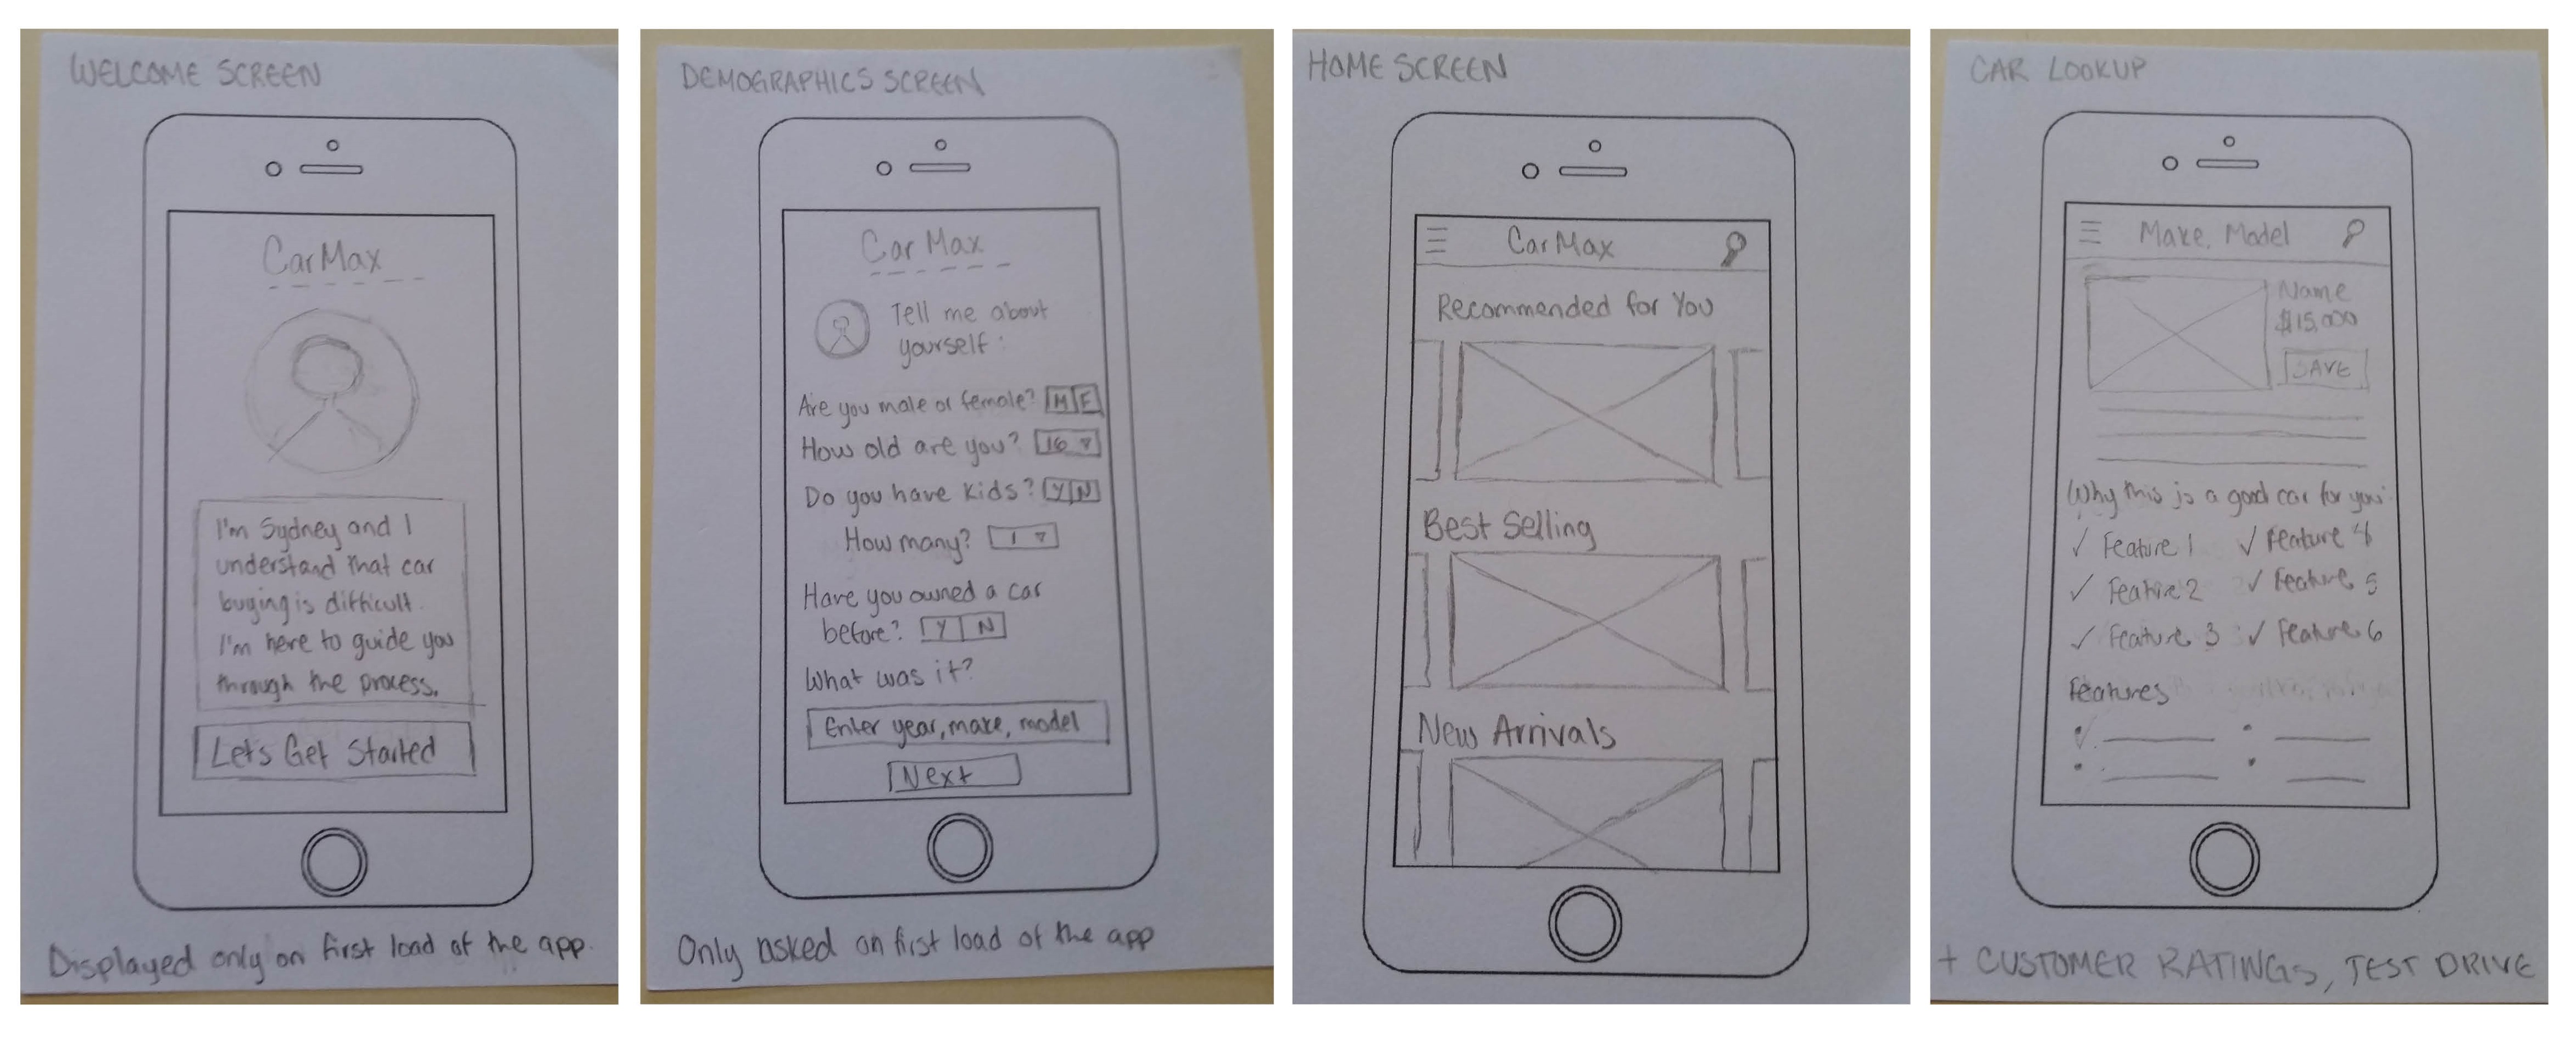 WELCOME SCREEN
CarMax
I'm Sydney and I
understand that car
buying is difficult.
I'm here to guide you
through the process.
Lets Get Started
Displayed only on first load of the app.
DEMOGRAPHICS SCREEN
CarMax
Tell me about
yourself:
Are you male or female? M F
How old are you? 16
Do you have kids? Y N
How many? 1
Have you owned a car
before? Y N
What was it?
Enter year, make, model
Next
Only asked on first load of the app
HOME SCREEN
CarMax
Recommended for You
Best Selling
New Arrivals
CAR LOOKUP
Make, Model
Name
$15,000
SAVE
Why this is a good car for you:
✓ Feature 1 ✓ Feature 4
✓ Feature 2 ✓ Feature 5
✓ Feature 3 ✓ Feature 6
Features
+ CUSTOMER RATINGS, TEST DRIVE